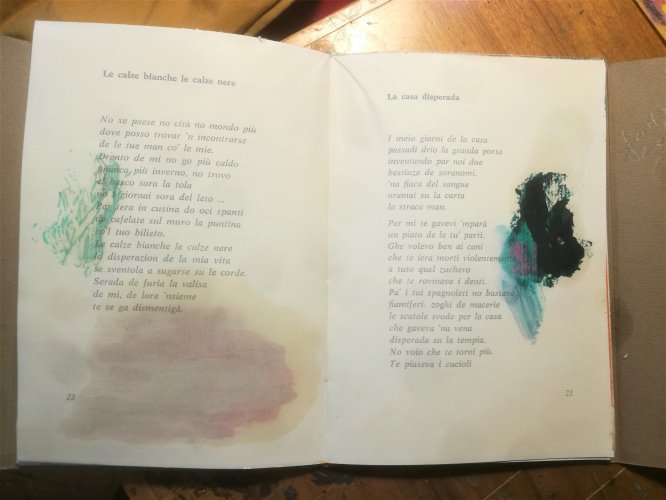 Le calze bianche le calze nere
No se paese no cità no mondo più
dove posso trovar 'n incontrarse
de le tue man co' le mie.
Drento de mi no go più caldo
gnanca più inverno, no trovo
el basco sora la tola
no i giornai sora del leto ...
Par tera in cusina do oci spanti
de cafelate sul muro la puntina
co'l tuo bilieto.
Le calze bianche le calze nere
la disperazion de la mia vita
se sventola a sugarse su le corde.
Serada de furia la valisa
de mi, de lore 'nsieme
te se ga dismentigà.
22
La casa disperada
I meio giorni de la casa
passadi drio la granda porta
inventando par noi due
bestiuze de soranomi.
'na fiaca del sangue
oramai su la carta
la straca man.
Per mi te gavevi 'mparà
un piato de le tu' parti.
Ghe volevo ben ai cani
che te iera morti violentemente
a tuto quel zuchero
che te rovinava i denti.
Pa' i tui spagnoleti no bastava
fiamiferi; zoghi de macerie
le scatole svode per la casa
che gaveva 'na vena
disperada su la tempia.
No voio che te torni più.
Te piaseva i cucioli
23